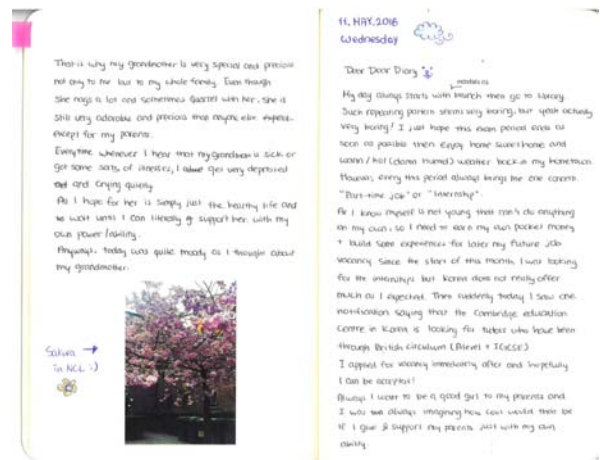 That is why my grandmother is very special and precious
not only to me but to my whole family. Even though
she nags a lot and sometimes quarrel with her. she is
still very adorable and precious than anyone else
except for my parents.
Everytime whenever I hear that my grandmom is sick or
got some sorts of illnesses, I get very depressed
and crying quietly
As I hope for her is simply just the healthy life and
to wait until I can literally support her with my
own power / ability.
Anyways, today was quite moody as I thought about
my grandmother.
Sakura →
in NCL :)
11. MAY. 2016
Wednesday
Dear Dear Diary
My day always starts with brunch then go to library.
Such repeating pattern seems very boring, but yeah actually
very boring! I just hope this exam period ends as
soon as possible then enjoy home sweet home and
warm / hot (damn humid) weather back in my hometown
However, every this period always brings me one concern.
"Part-time job" or "Internship".
As I know myself is not young that can't do anything
on my own, so I need to earn my own pocket money
+ build some experiences for later my future job
vacancy. Since the start of this month, I was looking
for the internships but Korea does not really offer
much as I expected. Then suddenly today I saw one
notification saying that the Cambridge education
Centre in Korea is looking for tutors who have been
through British (Alevel + IGCSE)
I applied for vacancy immediately after and hopefully
I can be accepted!
Always I want to be a good girl to my parents and
I was always imagining how cool would that be
if I give & support my parents just with my own
ability.